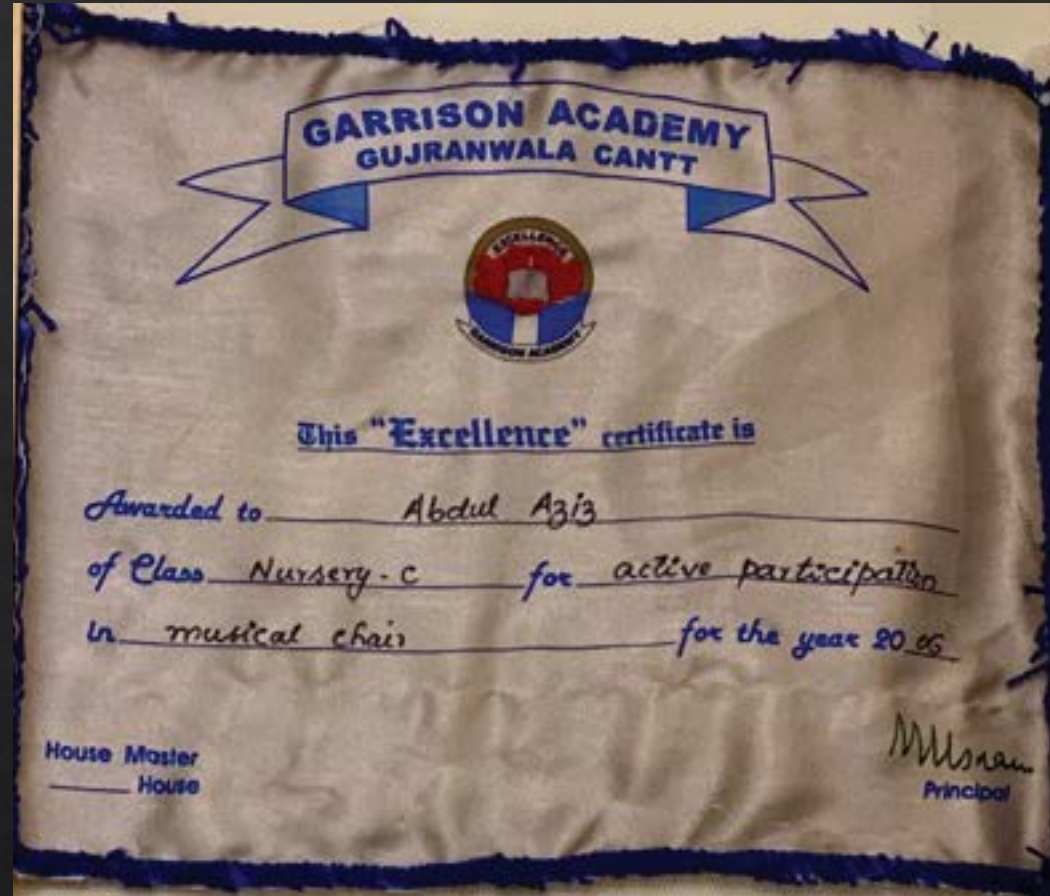 GARRISON ACADEMY
GUJRANWALA CANTT
EXCELLENCE
GARRISON ACADEMY
This "Excellence" certificate is
Awarded to Abdul Aziz
of Class Nursery - C for active participation
in musical chair for the year 20 06
House Master
House
Principal